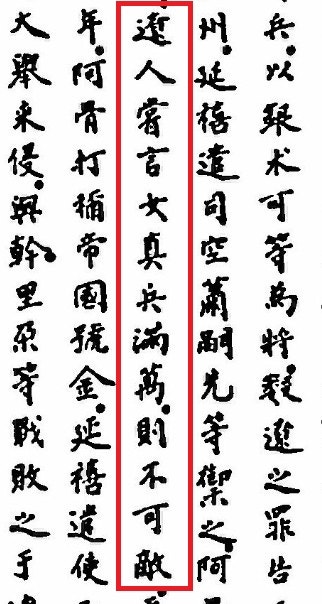 兵。以銀术可等為將。數遼之罪告
州。延禧遣司空蕭嗣先等禦之。阿
遼人嘗言女真兵滿萬。則不可敵
年。阿骨打稱帝國號金。延禧遣使
大舉來侵。興幹。里朶等戰敗之于